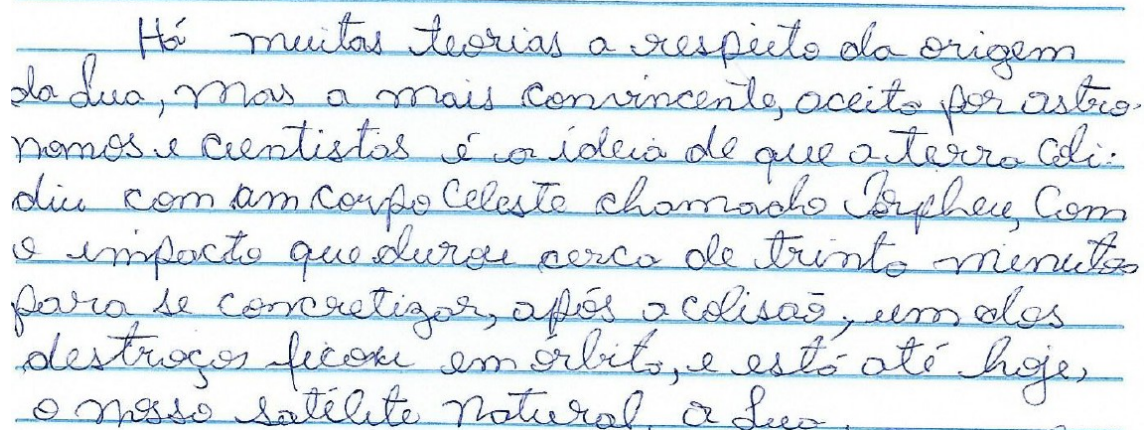 Há muitas teorias a respieto da origem
da Lua, mas a mais convincente, aceita por astro-
nomos e cientistas é a ideia de que a terra coli-
diu com um corpo celeste chamado Corpheu, Com
o impacto que durou cerca de trinta minutos
para se concretizar, após a colisão, um dos
destroços ficou em órbita, e está até hoje,
o nosso satélite natural, a Lua.